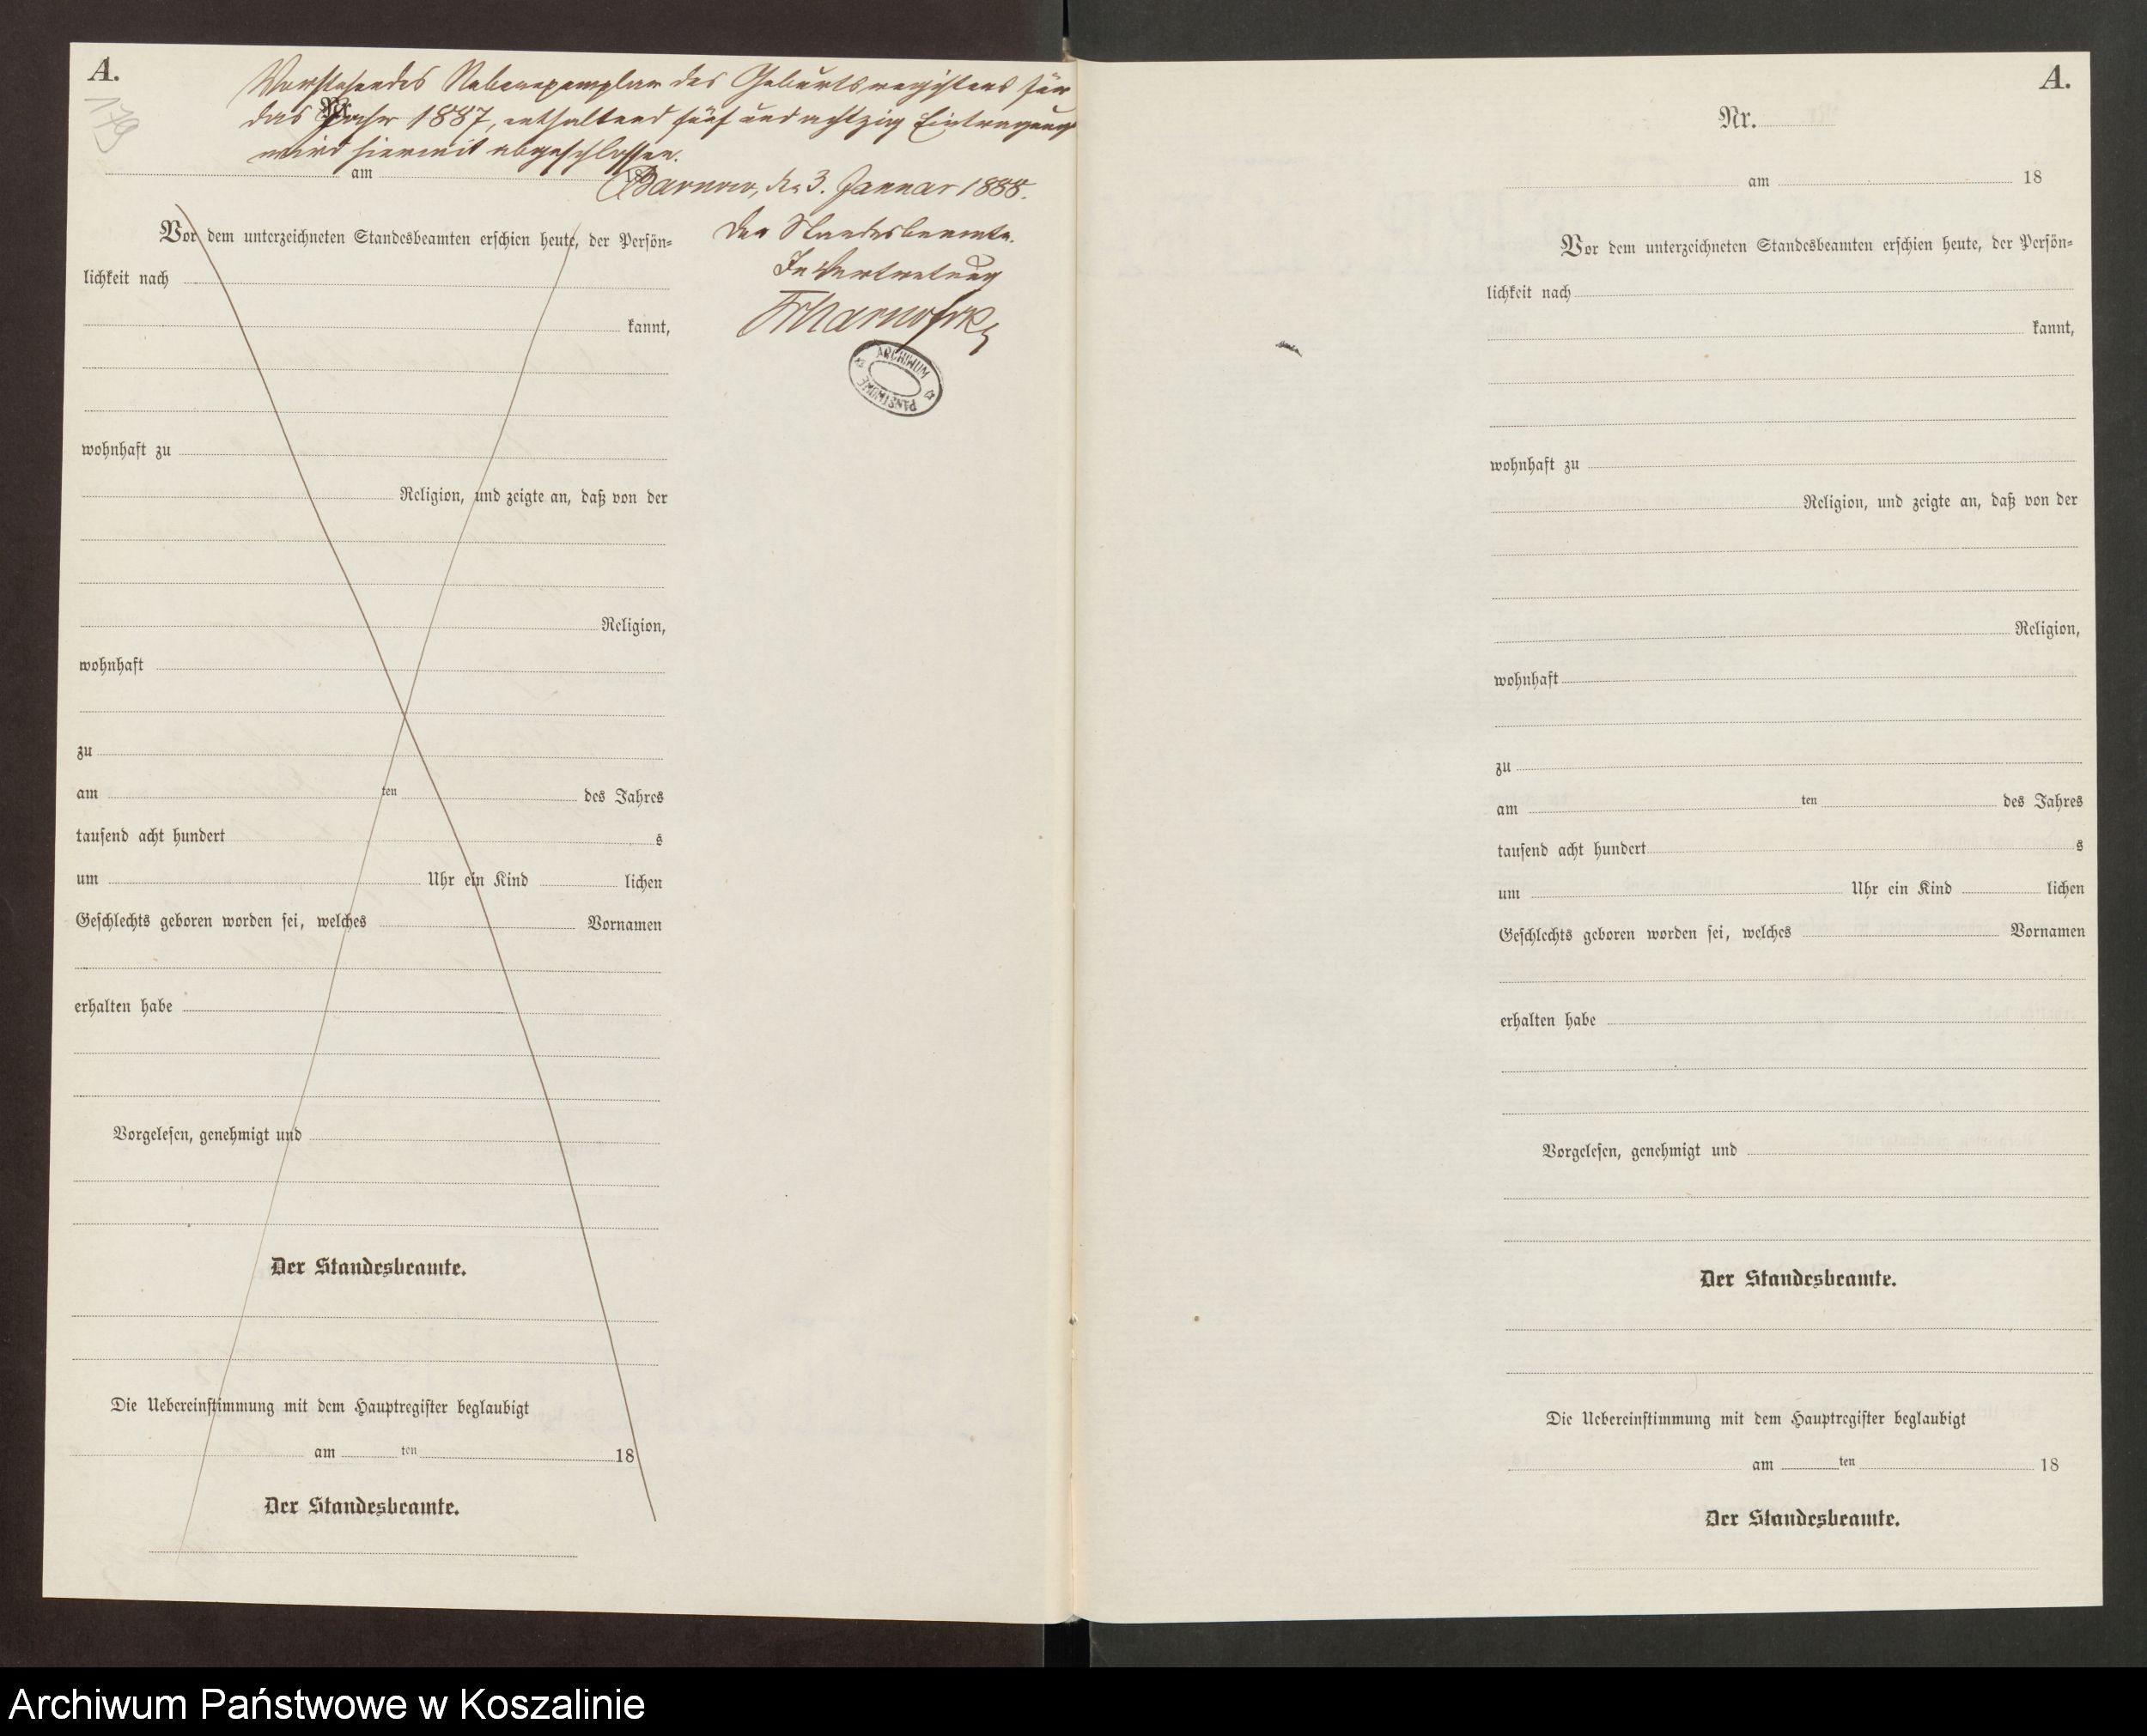 A.
179
Vorstehendes Nebenexemplar des Geburtsregisters für
Nr.
das Jahr 1887, enthaltend fünf und achtzig Eintragung
wird hiermit abgeschlossen.
am 18
Barnow, den 3. Januar 1888.
Der Standesbeamte.
In Vertretung
ARCHIWUM PAŃSTWOWE
Vor dem unterzeichneten Standesbeamten erschien heute, der Persön-
lichkeit nach
kannt,
wohnhaft zu
Religion, und zeigte an, daß von der
Religion,
wohnhaft
zu
am ten des Jahres
tausend acht hundert s
um Uhr ein Kind lichen
Geschlechts geboren worden sei, welches Vornamen
erhalten habe
Vorgelesen, genehmigt und
Der Standesbeamte.
Die Uebereinstimmung mit dem Hauptregister beglaubigt
am ten 18
Der Standesbeamte.
A.
Nr.
am 18
Vor dem unterzeichneten Standesbeamten erschien heute, der Persön-
lichkeit nach
kannt,
wohnhaft zu
Religion, und zeigte an, daß von der
Religion,
wohnhaft
zu
am ten des Jahres
tausend acht hundert s
um Uhr ein Kind lichen
Geschlechts geboren worden sei, welches Vornamen
erhalten habe
Vorgelesen, genehmigt und
Der Standesbeamte.
Die Uebereinstimmung mit dem Hauptregister beglaubigt
am ten 18
Der Standesbeamte.
Archiwum Państwowe w Koszalinie